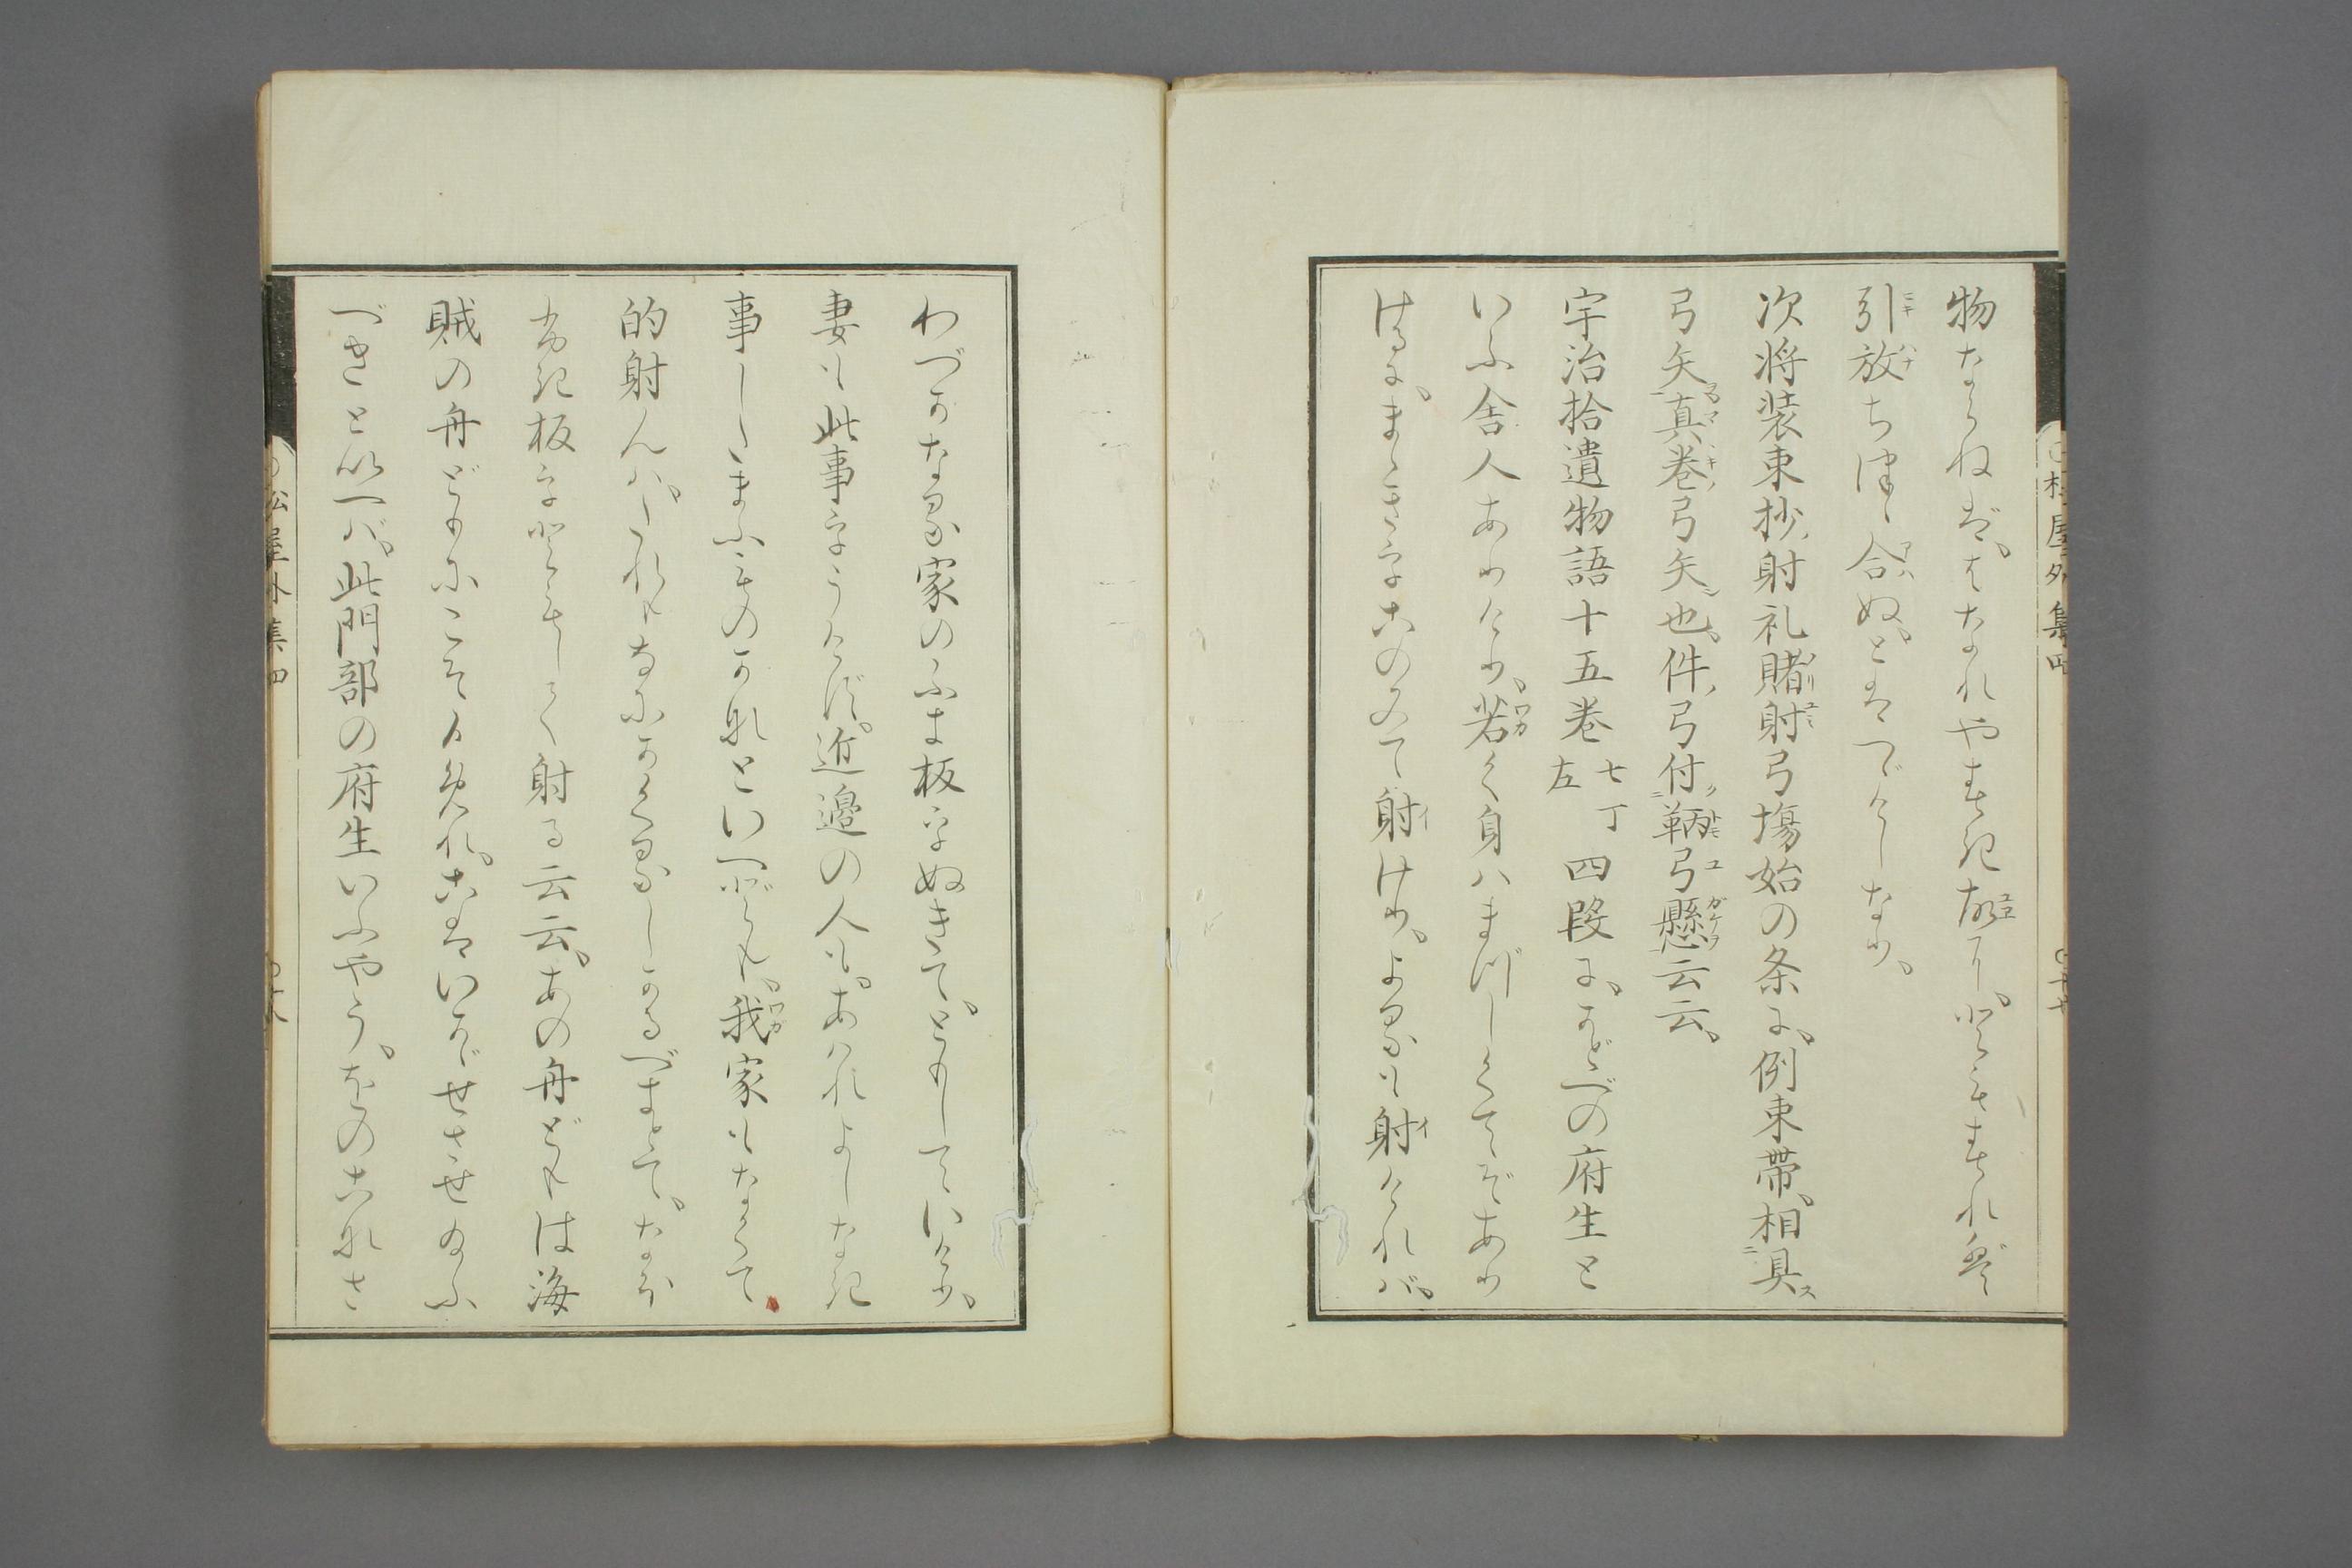 物ならねば、はなれやすき故に、ともすれば
引放ちつゝ合ぬとはいへしなり、
次将装束抄ノ射礼賭射弓場始の条に、例束帯、相具ス
弓矢ニ真巻ノ弓矢ニ也、件ノ弓付ノ鞆ニ弓懸云云、
宇治拾遺物語十五巻七丁左四段に、かどべの府生と
いふ舎人ありけり、若く身ハまづしくてぞあり
けるに、まゝきをこのみて射けり、よるも射ければ、
わづかなる家のふき板をぬきて、ともしていけり、
妻も此事をうけず、近邊の人も、あはれよしなき
事し給ふものかなといへども、我家もなくて
的射んハ、たれもなにかくるしかるべきとて、なほ
ふき板をともして射る云云、あの舟どもは海
賊の舟どもにこそ候めれ、こはいかゞせさせ給ふ
べきといへば、此門部の府生いふやう、をのこなさ
松屋外集四